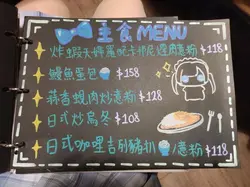 主食MENU
炸蝦天婦羅配卡邦尼肉意粉 $118
鰻魚蛋包 $158
蒜香蜆肉炒意粉 $128
日式炒烏冬 $108
日式咖哩吉列豬扒 /意粉 $118